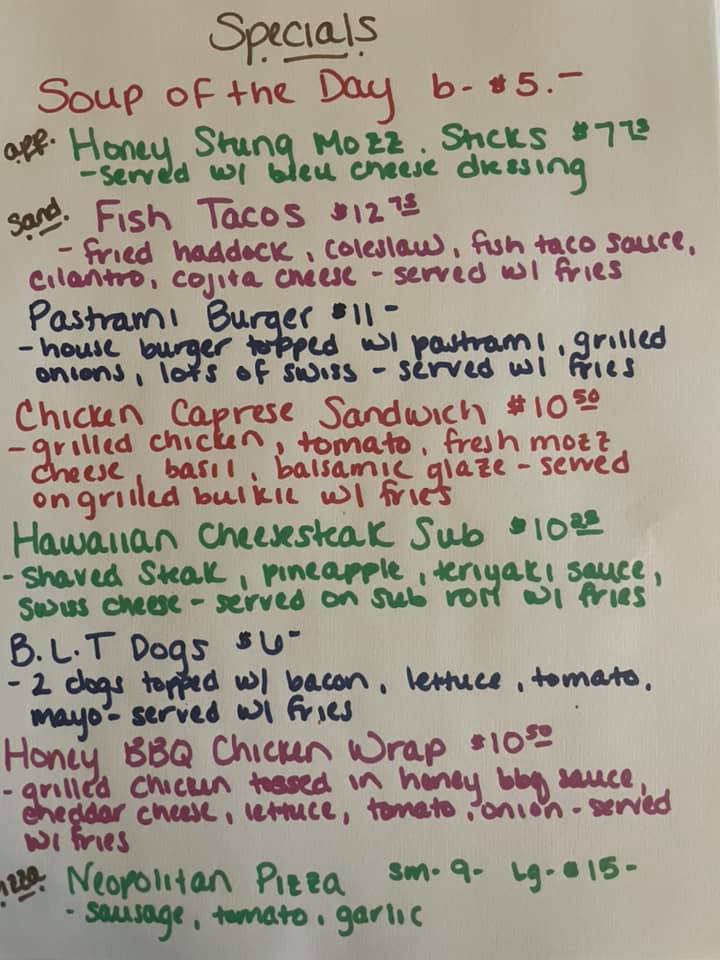 Specials
Soup of the Day b- $5.-
app. Honey Stung Mozz. Sticks $7 75
- served w/ bleu cheese dressing
Sand. Fish Tacos $12 75
- fried haddock, coleslaw, fish taco sauce,
cilantro, cojita cheese - served w/ fries
Pastrami Burger $11-
- house burger topped w/ pastrami, grilled
onions, lots of swiss - served w/ fries
Chicken Caprese Sandwich $10 50
- grilled chicken, tomato, fresh mozz
cheese, basil, balsamic glaze - served
on grilled bulkie w/ fries
Hawaiian Cheesesteak Sub $10
- Shaved Steak, pineapple, teriyaki sauce,
Swiss cheese - served on sub roll w/ fries
B.L.T Dogs $6-
- 2 dogs topped w/ bacon, lettuce, tomato,
mayo - served w/ fries
Honey BBQ Chicken Wrap $10 50
- grilled chicken tossed in honey bbq sauce,
cheddar cheese, lettuce, tomato, onion - served
w/ fries
Neopolitan Pizza sm- 9- Lg- $15-
- sausage, tomato, garlic